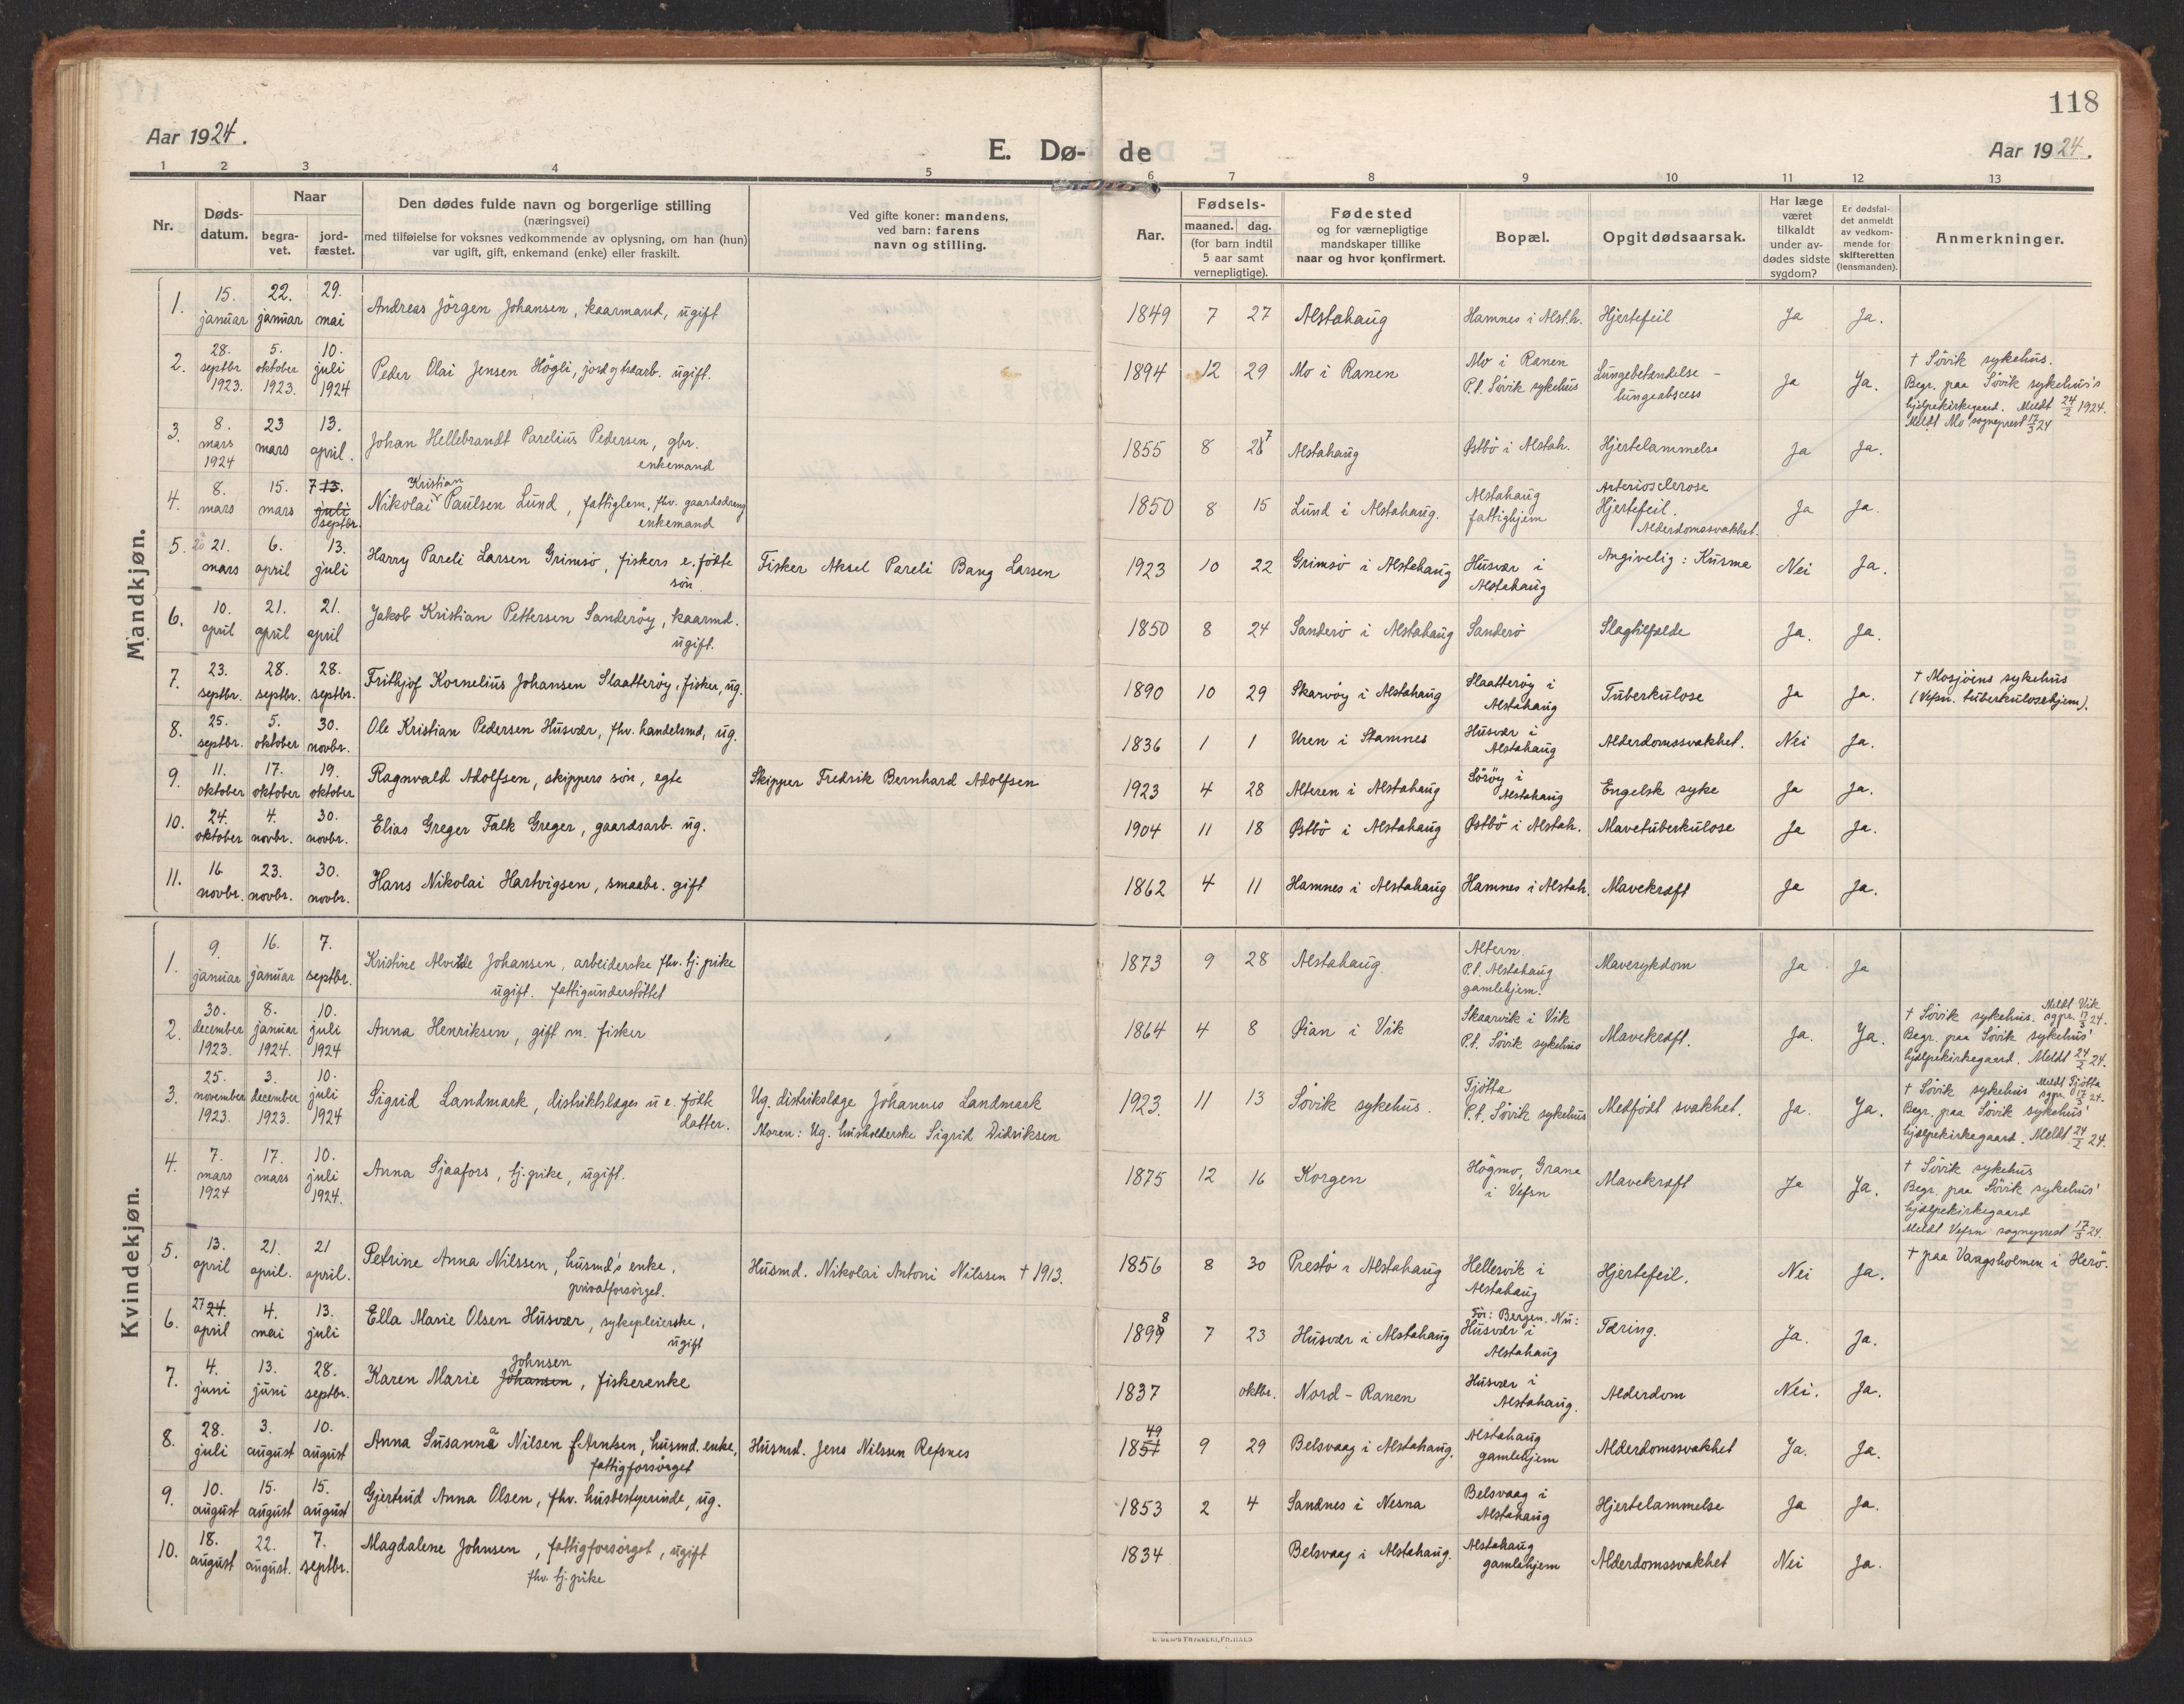 118
Aar 1924.
E. Dø- de
Aar 1924.
1 2 3 4 5 6 7 8 9 10 11 12 13
Nr.
Døds-
datum.
Naar
begra-
vet.
jord-
fæstet.
Den dødes fulde navn og borgerlige stilling
(næringsvei)
med tilføielse for voksnes vedkommende av oplysning, om han (hun)
var ugift, gift, enkemand (enke) eller fraskilt.
Ved gifte koner: mandens,
ved barn: farens
navn og stilling.
Aar.
Fødsels-
maaned. dag.
(for barn indtil
5 aar samt
vernepligtige).
Fødested
og for værnepligtige
mandskaper tillike
naar og hvor konfirmert.
Bopæl.
Opgit dødsaarsak.
Har læge
været
tilkaldt
under av-
dødes sidste
sygdom?
Er dødsfal-
det anmeldt
av vedkom-
mende for
skifteretten
(lensmanden).
Anmerkninger.
Mandkjøn.
1. 15. januar 22. januar 29. mai Andreas Jörgen Johansen, kaarmand, ugift 1849 7 27 Alstahaug Hamnes i Alst.h. Hjertefeil Ja Ja.
2. 28. septbr 1923. 5. oktober 1923. 10. juli 1924 Peder Olai Jensen Högli, jord og trearb. ugift. 1894 12 29 Mo i Ranen Mo i Ranen P.t. Sövik sykehus Lungebetændelse - lungeabscess Ja Ja. † Sövik sykehus.
Begr. paa Sövik sykehus's
hjelpekirkegaard. Meldt 24/2 1924.
Meldt Mo sogneprest 17/3 24
3. 8. mars 1924 23 mars 13. april. Johan Hellebrandt Parelius Pedersen, gbr. enkemand 1855 8 28 7 Alstahaug Østbö i Alstah. Hjertelammelse Ja Ja.
4. 8. mars 15. mars 7 13. juli septbr. Nikolai Kristian Paulsen Lund, fattiglem, fhv. gaardsdreng enkemand 1850 8 15 Lund i Alstahaug. Alstahaug fattighjem Arteriosclerose Hjertefeil. Alderdomssvakhet. Ja Ja.
5. 20 21. mars 6. april 13. juli Harry Pareli Larsen Grimsö, fiskers e. födte sön. Fisker Aksel Pareli Bang Larsen 1923 10 22 Grimsö i Alstahaug Husvær i Alstahaug Angivelig: Kusma Nei Ja.
6. 10. april 21. april 21. april Jakob Kristian Pettersen Sanderöy, kaarmd. ugift. 1850 8 24 Sanderö i Alstahaug Sanderö Slagtilfælde Ja. Ja.
7. 23. septbr. 28. septbr. 28. septbr. Frithjof Kornelius Johansen Slaatteröy, fisker, ug. 1890 10 29 Skarvöy i Alstahaug Slaatteröy i Alstahaug Tuberkulose Ja Ja. † Mosjöens sykehus
(Vefsn. tuberkulosehjem).
8. 25. septbr. 5. oktober 30. novbr. Ole Kristian Pedersen Husvær, fhv. handelsmd, ug. 1836 1 1 Uren i Stamnes Husvær i Alstahaug Alderdomssvakhet. Nei Ja.
9. 11. oktober 17. oktober 19. oktober Ragnvald Adolfsen, skippers sön, egte Skipper Fredrik Bernhard Adolfsen 1923 4 28 Alteren i Alstahaug Söröy i Alstahaug Engelsk syke Ja Ja.
10. 24. oktober 4. novbr. 30. novbr. Elias Greger Falk Greger, gaardsarb. ug. 1904 11 18 Østbö i Alstahaug Østbö i Alstah. Mavetuberkulose Ja Ja.
11. 16 novbr. 23. novbr. 30. novbr. Hans Nikolai Hartvigsen, smaabr. gift 1862 4 11 Hamnes i Alstahaug Hamnes i Alstah. Mavekræft Ja Ja.
Kvindekjøn.
1. 9. januar 16. januar 7. septbr. Kristine Alvilde Johansen, arbeiderske fhv. tj.pike ugift. fattigunderstöttet 1873 9 28 Alstahaug Altern. P.t. Alstahaug gamlehjem. Mavesykdom Ja Ja
2. 30. december 1923. 8. januar 1924. 10. juli 1924 Anna Henriksen, gift m. fisker 1864 4 8 Øian i Vik Skaarvik i Vik P.t. Sövik sykehus Mavekræft. Ja. Ja. † Sövik sykehus. Meldt Vik sgpr. 17/3 24.
Begr. paa Sövik sykehus'
hjelpekirkegaard. Meldt 24/2 24.
3. 25. november 1923. 3. december 1923. 10. juli 1924 Sigrid Landmark, distriktslæges u e. födte datter. Ug. distrikslæge Johannes Landmark
Moren: Ug. husholderske Sigrid Didriksen 1923. 11 13 Sövik sykehus. Tjötta P.t. Sövik sykehus Medfödt svakhet. Ja. Ja. † Sövik sykehus Meldt Tjötta sgpr. 17/3 24.
Begr. paa Sövik sykehus'
hjelpekirkegaard. Meldt 24/2 24.
4. 7. mars 1924 17. mars 10. juli 1924. Anna Sjaafors, tj.pike, ugift. 1875 12 16 Korgen Högmo, Grane i Vefsn Mavekræft Ja Ja. † Sövik sykehus
Begr. paa Sövik sykehus'
hjelpekirkegaard
Meldt Vefsn sogneprest 17/3 24.
5. 13. april 21. april. 21 april. Petrine Anna Nilssen, husmd's enke, privatforsörget. Husmd. Nikolai Antoni Nilssen † 1913. 1856 8 30 Prestö i Alstahaug Hellesvik i Alstahaug Hjertefeil. Nei Ja. † paa Vaagsholmen i Herö.
6. 27 24. april 4. mai 13. juli Ella Marie Olsen Husvær, sykepleierske, ugift 1899 8 7 23 Husvær i Alstahaug Før: Bergen. Nu: Husvær i Alstahaug Tæring. Ja. Ja.
7. 4. juni 13. juni 28. septbr. Karen Marie Johansen Johnsen, fiskerenke 1837 oktbr. Nord-Ranen Husvær i Alstahaug. Alderdom Nei. Ja.
8. 28. juli 3. august 10. august Anna Susanna Nilsen f Arntsen, husmd. enke, fattigforsörget Husmd. Jens Nilssen Refsnes 1851 49 9 29 Belsvaag i Alstahaug. Alstahaug gamlehjem Alderdomssvakhet Ja. Ja.
9. 10. august 15. august 15. august Gjertrud Anna Olsen, fhv. husbestyerinde, ug. 1853 2 4 Sandnes i Nesna Belsvaag i Alstahaug Hjertelammelse Ja Ja.
10. 18. august 22. august. 7. septbr. Magdalene Johnsen, fattigforsörget, ugift fhv. tj.pike 1834 Belsvaag i Alstahaug. Alstahaug gamlehjem Alderdomssvakhet Nei Ja.